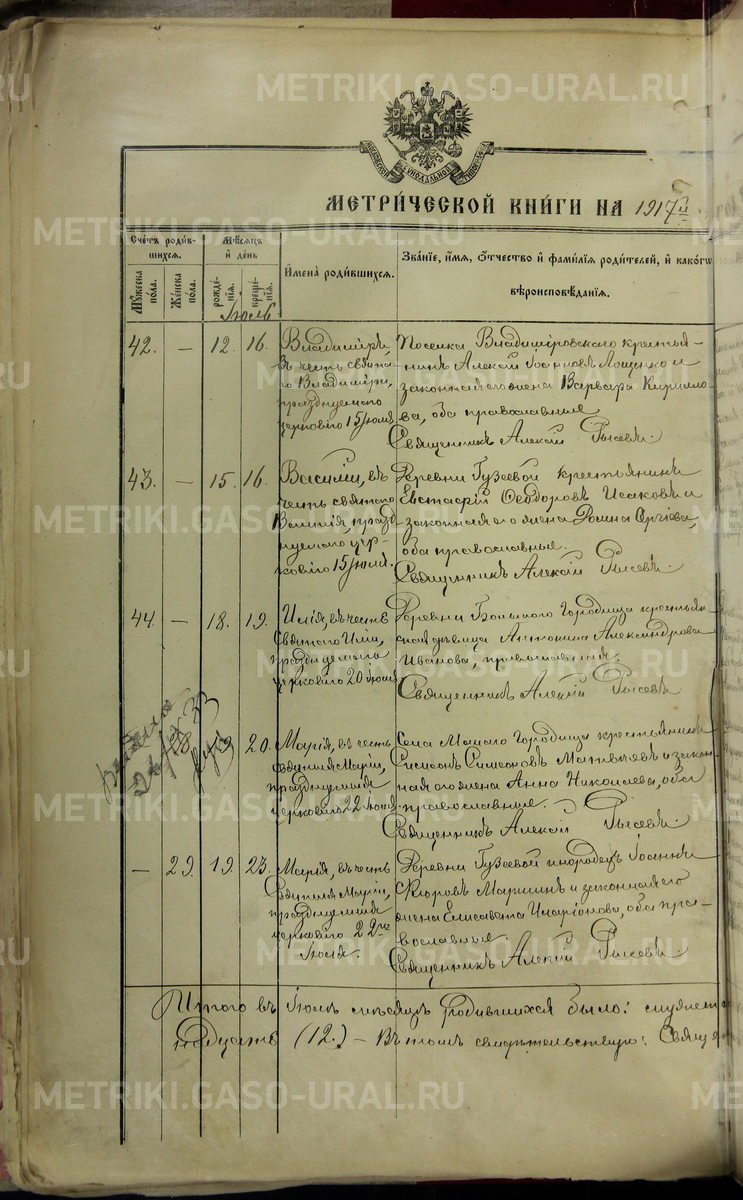 METRIKI.GASO-URAL.RU
МОСКОВСКОЙ СѴНОДАЛЬНОЙ ТИПОГРАФІИ
МЕТРИ́ЧЕСКОЙ КНИ́ГИ НА 1917 й
Сче́тъ роди́в-
шихся.
Мѣ́сяцъ
и҆ де́нь
И҆мена̀ роди́вшихся.
Зва́нїе, и҆́мя, ѻ҆́тчество и҆ фами́лїѧ роди́телей, и҆ како́гѡ
вѣроисповѣ́данїѧ.
Мꙋ́жеска по́ла.
Же́нска по́ла.
рожде́нїя.
креще́нїя.
Іюль
42. — 12. 16.
Владиміръ,
въ честь свята-
го Владиміра,
празднуемого
церковію 15 іюля.
Поселка Владиміровскаго крестья-
нинъ Алексій Іоанновъ Лощенко и
законная его жена Варвара Кирилло-
ва, оба православные.
Священникъ Алексій
43. — 15. 16.
Василій, въ
честь святаго
Василія, празд-
нуемого цер-
ковію 15 іюля.
Деревни Гузеевой крестьянинъ
Евстафій Ѳеодоровъ Исаковъ и
законная его жена Сергіева,
оба православные.
Священникъ Алексій
44. — 18. 19.
Илія, въ честь
Святаго Иліи,
празднуемого
церковію 20 іюля
Деревни Большого Городища крестьян-
ская дѣвица Антонина Александрова
Иванова, православная.
Священникъ Алексій
20.
Марія, въ честь
Святыя Маріи,
празднуемыя
церковію 22 іюля
Села Малаго Городища крестьянинъ
Симеонъ Симеоновъ Матвѣевъ и закон-
ная его жена Анна Николаева, оба
православные.
Священникъ Алексій
— 29. 19. 23.
Марія, въ честь
Святыя Маріи,
празднуемыя
церковію 22го
Іюля.
Деревни Гузеевой инородецъ Іоаннъ
и законная его
жена Елисавета Иларіонова, оба пра-
вославные.
Священникъ Алексій
Итого въ Іюлѣ мѣсяцѣ родившихся было:
(12.) — Въ томъ свидѣтельствую: